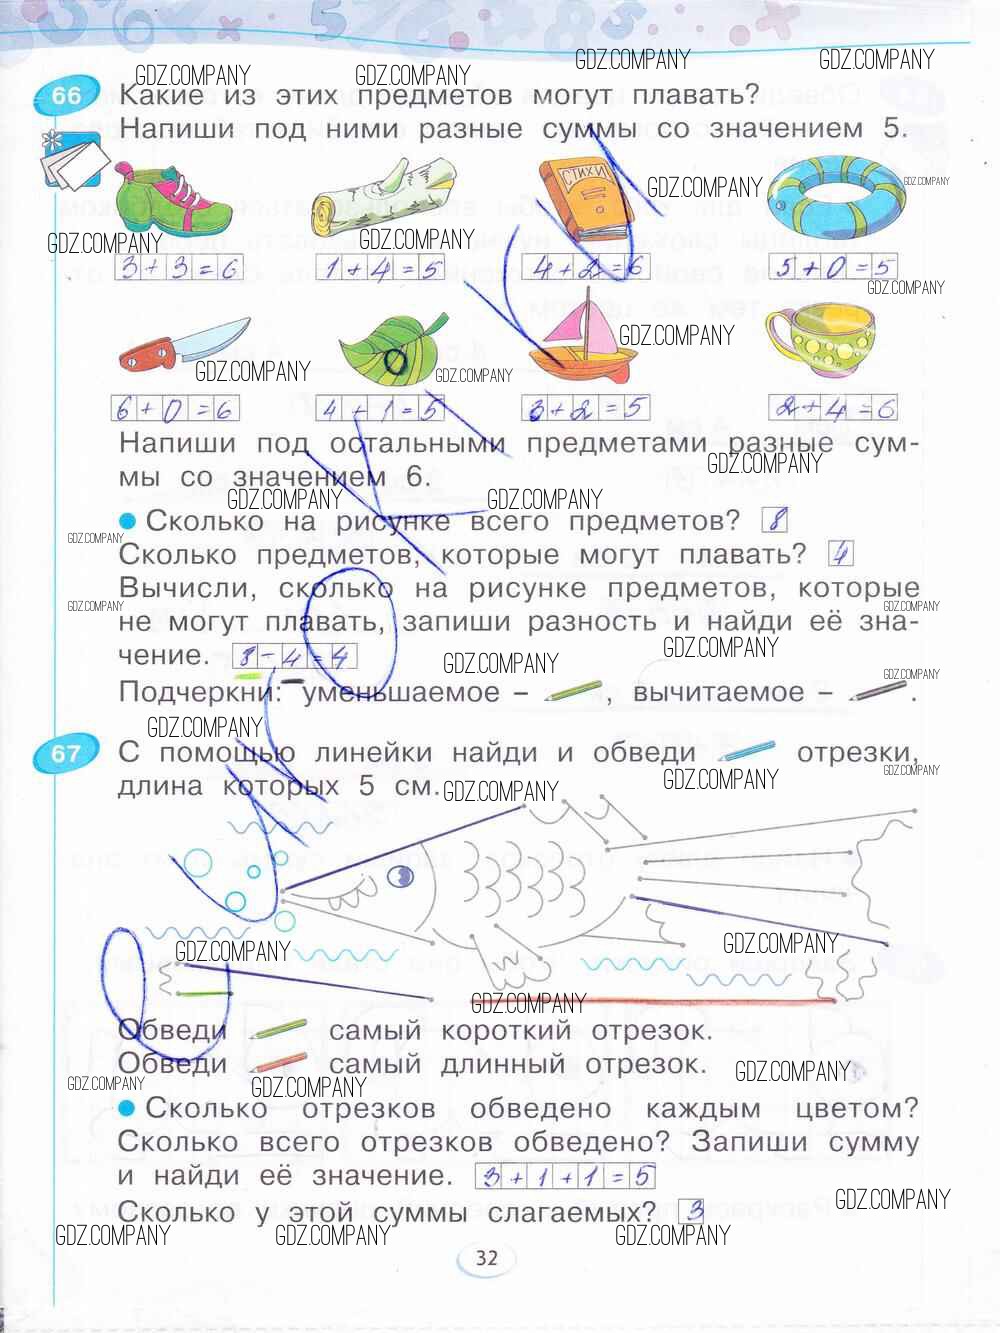 GDZ.COMPANY GDZ.COMPANY GDZ.COMPANY GDZ.COMPANY
66 Какие из этих предметов могут плавать?
Напиши под ними разные суммы со значением 5.
СТИХИ
GDZ.COMPANY GDZ.COMPANY
GDZ.COMPANY GDZ.COMPANY
3+3=6 1+4=5 4+2=6 5+0=5
GDZ.COMPANY
GDZ.COMPANY
GDZ.COMPANY GDZ.COMPANY
6+0=6 4+1=5 3+2=5 2+4=6
Напиши под остальными предметами разные сум-
GDZ.COMPANY
мы со значением 6.
GDZ.COMPANY GDZ.COMPANY
Сколько на рисунке всего предметов? 8
GDZ.COMPANY
Сколько предметов, которые могут плавать? 4
Вычисли, сколько на рисунке предметов, которые
GDZ.COMPANY GDZ.COMPANY
не могут плавать, запиши разность и найди её зна-
чение. 8-4=4
GDZ.COMPANY GDZ.COMPANY
GDZ.COMPANY
Подчеркни: уменьшаемое – , вычитаемое – .
GDZ.COMPANY
67 С помощью линейки найди и обведи отрезки,
GDZ.COMPANY GDZ.COMPANY
длина которых 5 см.
GDZ.COMPANY
GDZ.COMPANY GDZ.COMPANY
GDZ.COMPANY
Обведи самый короткий отрезок.
Обведи самый длинный отрезок.
GDZ.COMPANY GDZ.COMPANY GDZ.COMPANY
Сколько отрезков обведено каждым цветом?
Сколько всего отрезков обведено? Запиши сумму
и найди её значение. 3+1+1=5
GDZ.COMPANY
Сколько у этой суммы слагаемых? 3
GDZ.COMPANY GDZ.COMPANY GDZ.COMPANY
32